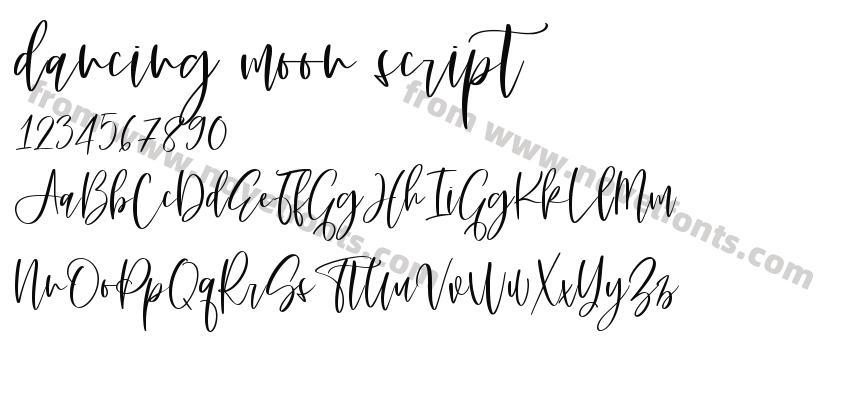 dancing moon script
1234567890
AaBbCcDdEeFfGgHhIiGgKkLlMm
NnOoPpQqRrSsTtUuVvWwXxYyZz
from www.novelfonts.com
from www.novelfonts.com